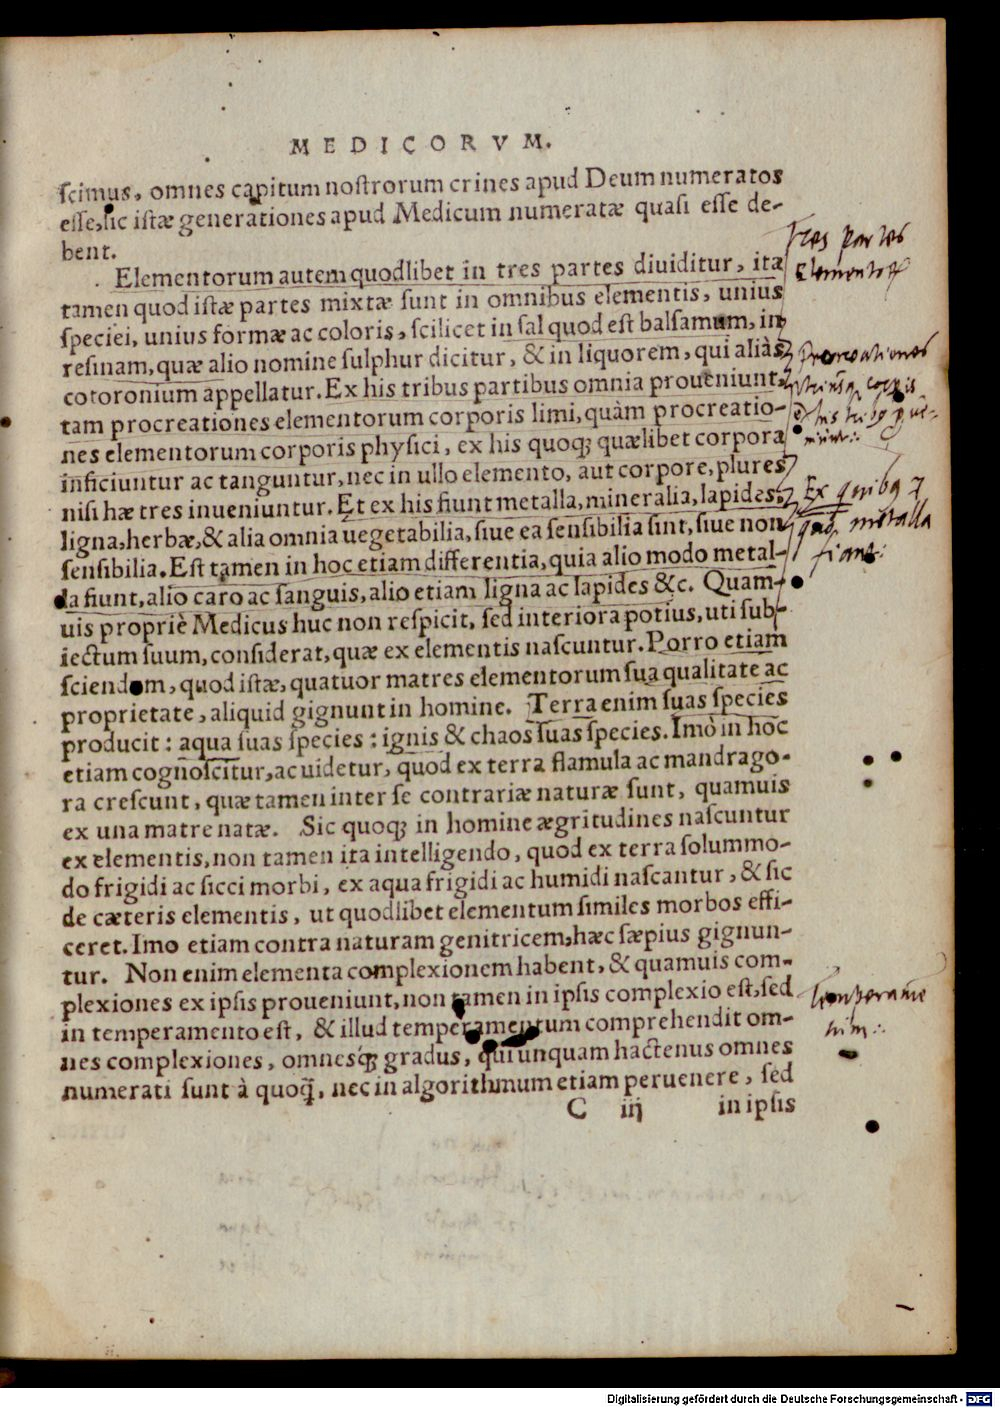 MEDICORVM.
ſcimus, omnes capitum noſtrorum crines apud Deum numeratos
eſſe, ſic iſtæ generationes apud Medicum numeratæ quaſi eſſe de-
bent.
Elementorum autem quodlibet in tres partes diuiditur, ita
tamen quod iſtæ partes mixtæ ſunt in omnibus elementis, unius
ſpeciei, unius formæ ac coloris, ſcilicet in ſal quod eſt balſamum, in
reſinam, quæ alio nomine ſulphur dicitur, & in liquorem, qui aliàs
cotoronium appellatur. Ex his tribus partibus omnia proueniunt
tam procreationes elementorum corporis limi, quàm procreatio-
nes elementorum corporis phyſici, ex his quoq; quælibet corpora
inficiuntur ac tanguntur, nec in ullo elemento, aut corpore, plures
niſi hæ tres inueniuntur. Et ex his fiunt metalla, mineralia, lapides,
ligna, herbæ, & alia omnia uegetabilia, ſiue ea ſenſibilia ſint, ſiue non
ſenſibilia. Eſt tamen in hoc etiam differentia, quia alio modo metal-
la fiunt, alio caro ac ſanguis, alio etiam ligna ac lapides &c. Quam-
uis propriè Medicus huc non reſpicit, ſed interiora potius, uti ſub-
iectum ſuum, conſiderat, quæ ex elementis naſcuntur. Porro etiam
ſciendum, quod iſtæ, quatuor matres elementorum ſua qualitate ac
proprietate, aliquid gignunt in homine. Terra enim ſuas ſpecies
producit : aqua ſuas ſpecies : ignis & chaos ſuas ſpecies. Imò in hoc
etiam cognoſcitur, ac uidetur, quod ex terra flamula ac mandrago-
ra creſcunt, quæ tamen inter ſe contrariæ naturæ ſunt, quamuis
ex una matre natæ. Sic quoq; in homine ægritudines naſcuntur
ex elementis, non tamen ita intelligendo, quod ex terra ſolummo-
do frigidi ac ſicci morbi, ex aqua frigidi ac humidi naſcantur, & ſic
de cæteris elementis, ut quodlibet elementum ſimiles morbos effi-
ceret. Imo etiam contra naturam genitricem, hæc ſæpius gignun-
tur. Non enim elementa complexionem habent, & quamuis com-
plexiones ex ipſis proueniunt, non tamen in ipſis complexio eſt, ſed
in temperamento eſt, & illud temperamentum comprehendit om-
nes complexiones, omneſq́; gradus, qui unquam hactenus omnes
numerati ſunt à quoq̃, nec in algorithmum etiam peruenere, ſed
C iij in ipſis
Tres partes
Elementoꝝ
Procreationes
Ex quibꝰ
metalla
fiant:
Temperame
Digitalisierung gefördert durch die Deutsche Forschungsgemeinschaft - DFG